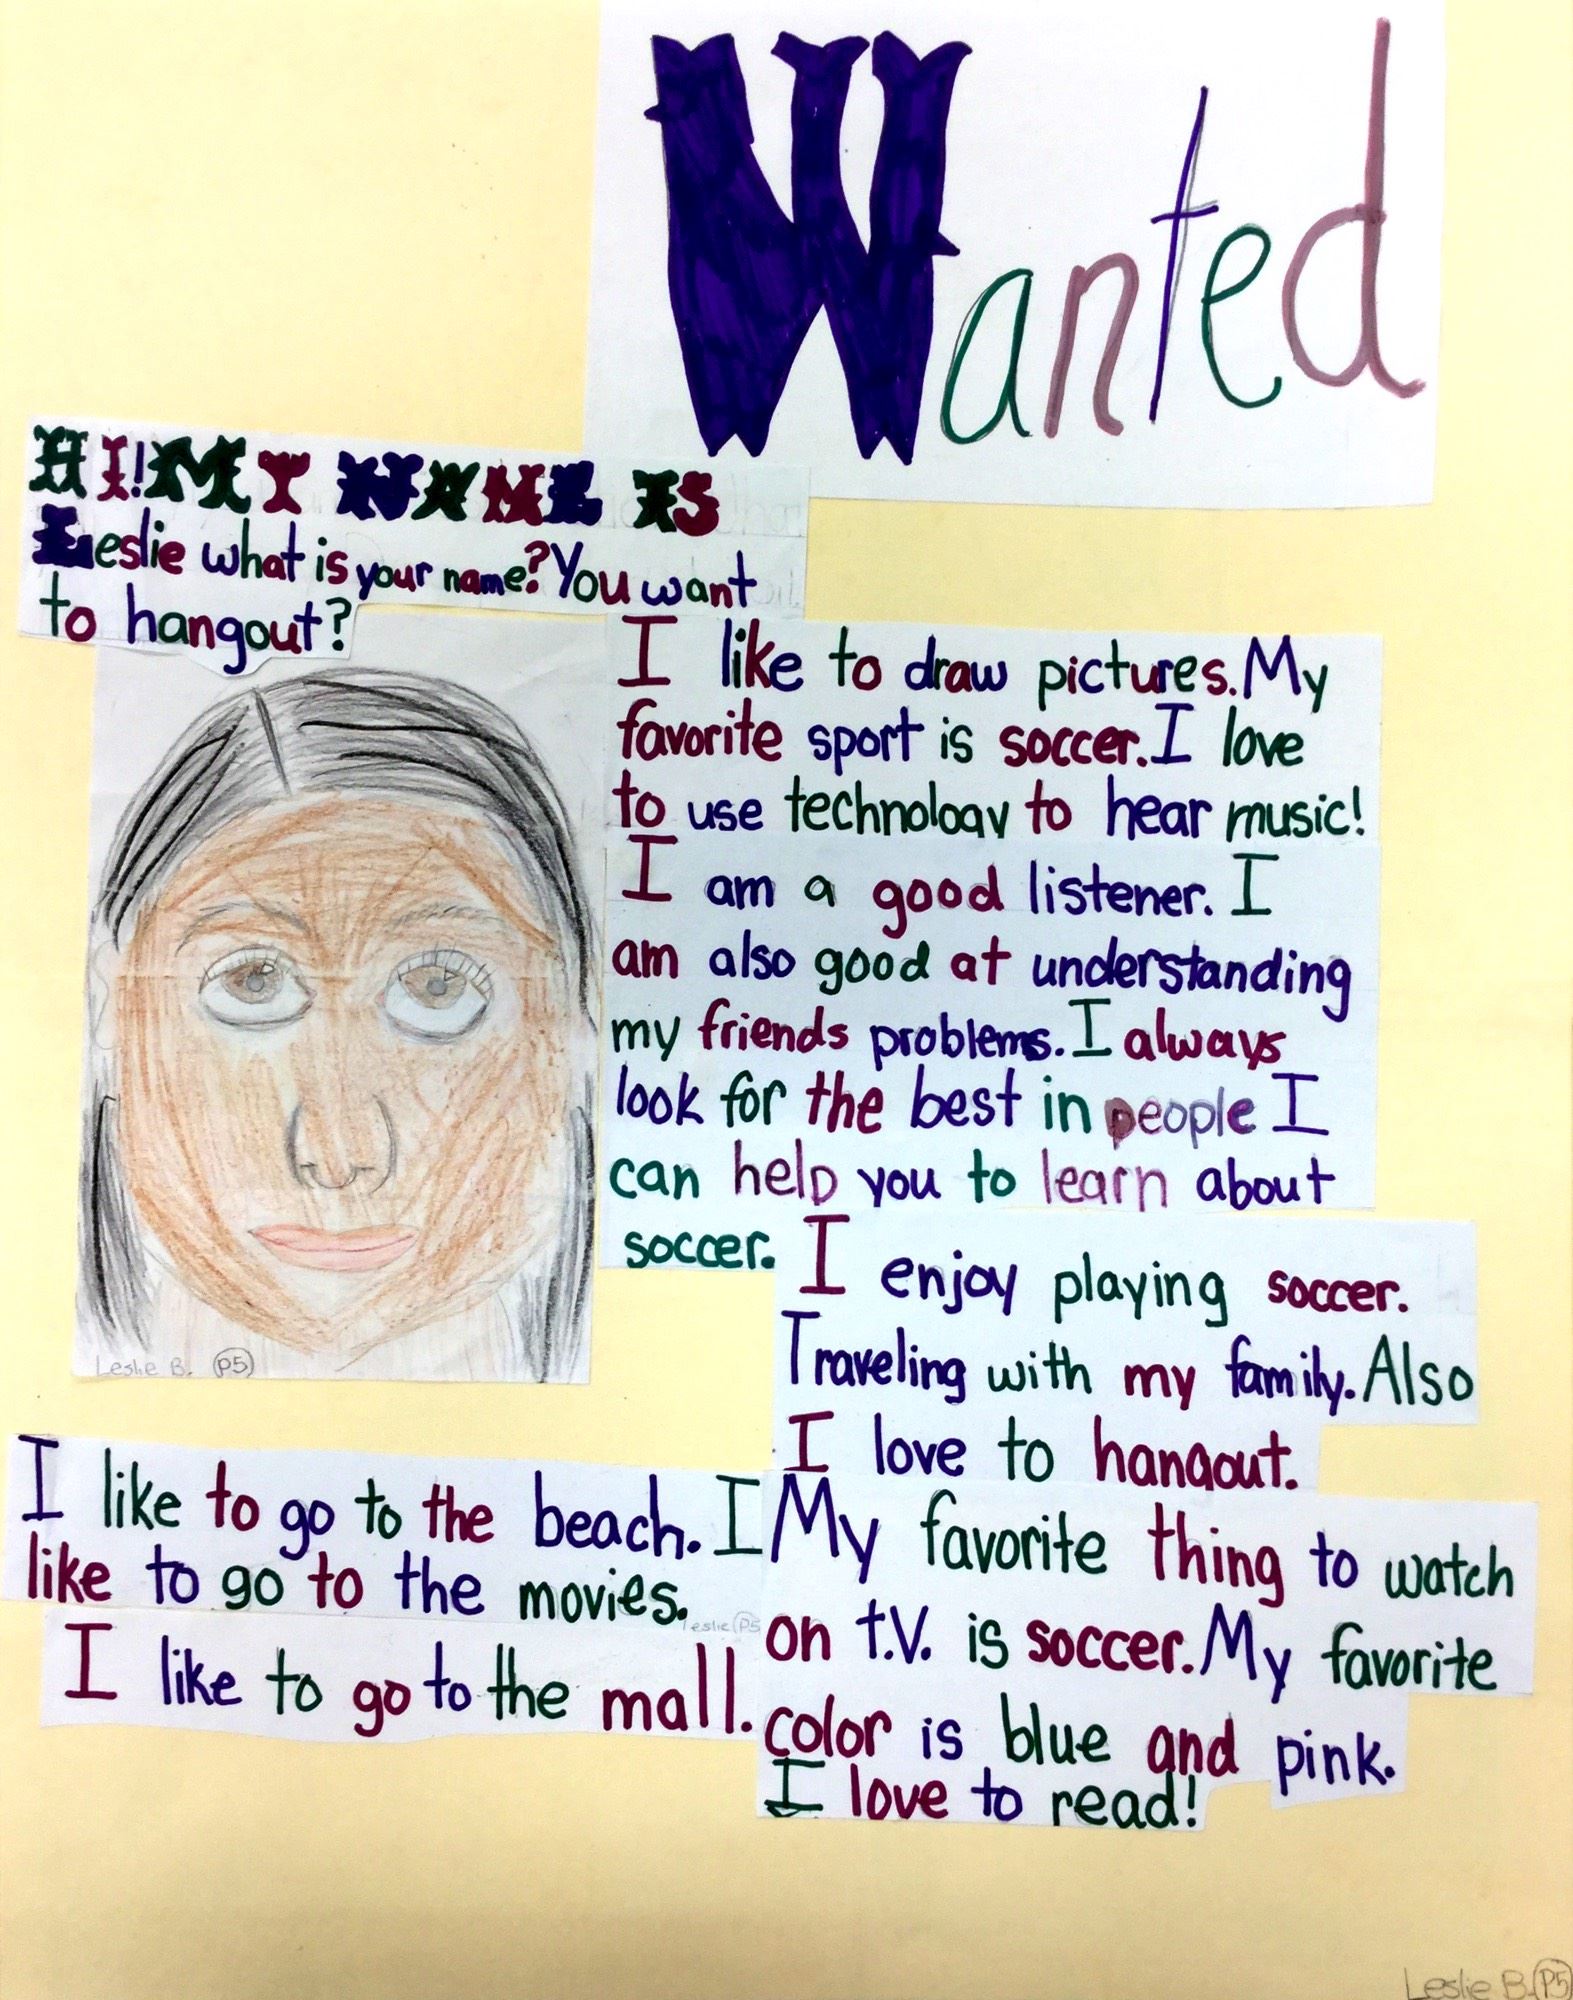 Wanted
HI! MY NAME IS
Leslie what is your name? You want
to hangout?
I like to draw pictures. My
favorite sport is soccer. I love
to use technology to hear music!
I am a good listener. I
am also good at understanding
my friends problems. I always
look for the best in people I
can help you to learn about
soccer.
I enjoy playing soccer.
Traveling with my family. Also
I love to hangout.
Leslie B. P5
I like to go to the beach. I
like to go to the movies.
Leslie P5
I like to go to the mall.
My favorite thing to watch
on t.v. is soccer. My favorite
color is blue and pink.
I love to read!
Leslie B. P5